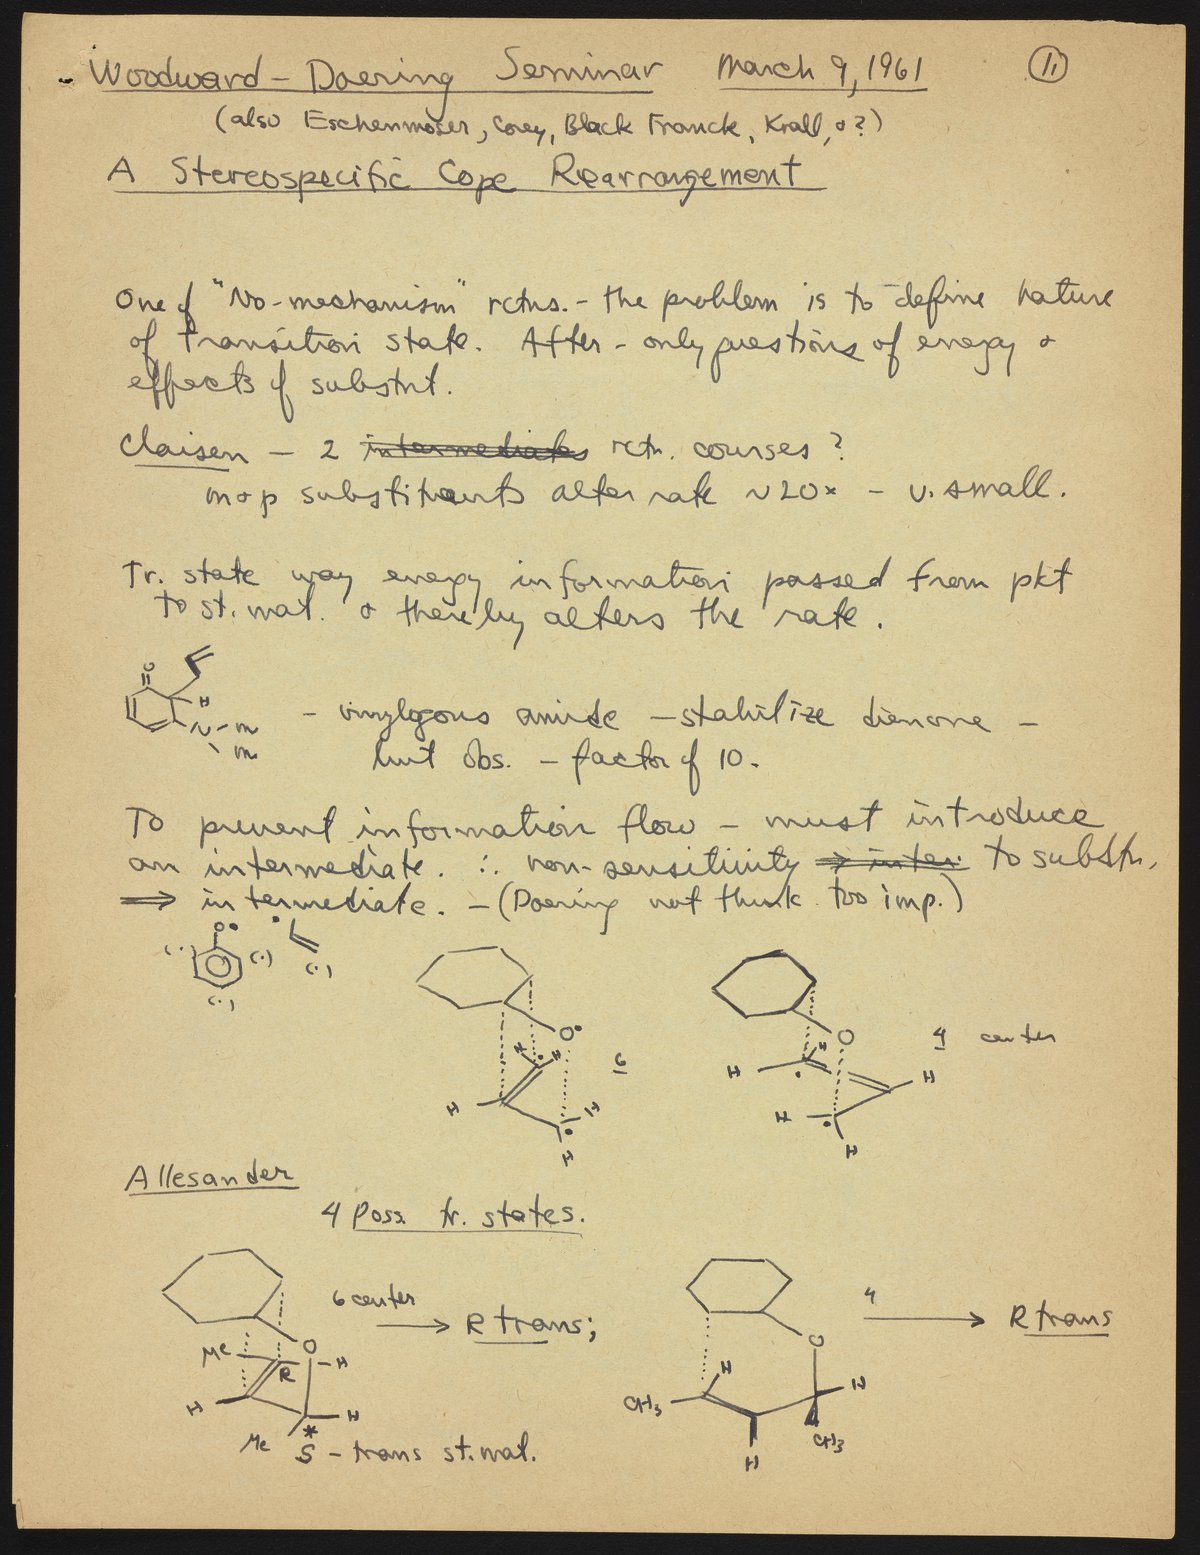 Woodward - Doering Seminar March 9, 1961 1,
(also Eschenmoser, Corey, Black Franck, Krall, & ?)
A Stereospecific Cope Rearrangement
One of "No-mechanism" rctns. - the problem is to define nature
of transition state. After - only questions of energy &
effects of substnt.
Claisen - 2 intermediates rctn. courses ?
m & p substituents alter rate ~20x - v. small.
Tr. state way energy information passed from pkt
to st. mat. & thereby alters the rate.
O
H
N - m
m
- vinylogous amide - stabilize dienone -
but obs. - factor of 10.
To prevent information flow - must introduce
an intermediate. ∴ non-sensitivity ⇒ inter. to substn.
⇒ intermediate. - (Doering not think too imp.)
O•
(·) (·) (·)
(·)
O•
H H
6
H H
H
O
4 center
H H
H
H
H
Allesander
4 Poss. tr. states.
6 center
→ R trans;
O
Me
R
H
H
H
Me
*
S - trans st. mat.
4
→ R trans
O
H
CH3
H
CH3
H